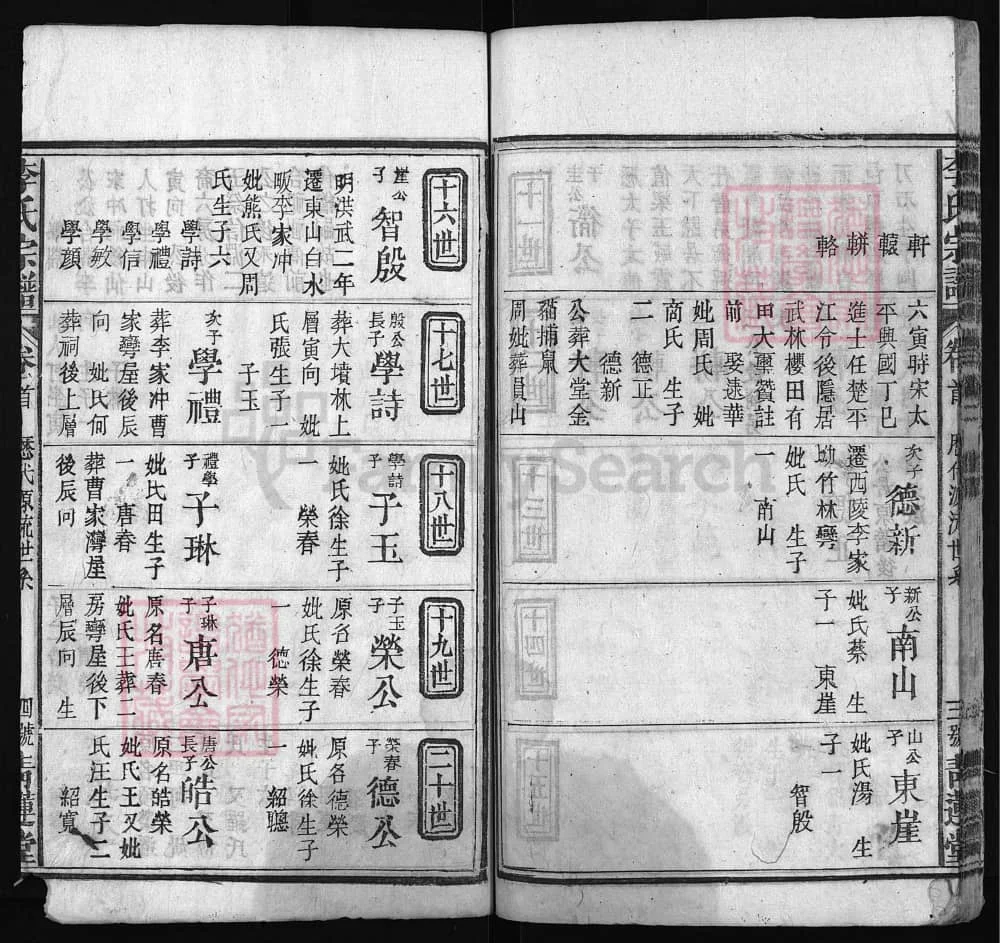 軒
轅
輧
輅
六寅時宋太
平興國丁巳
進士任楚平
江令後隱居
武林櫻田有
田大璽贊註
前 娶遠華
妣周氏 妣
商氏 生子
二 德正
德新
公葬大堂金
豬捕鼠
周妣葬員山
次子 德新
遷西陵李家
坳竹林彎
妣氏 生子
一 南山
新公子 南山
妣氏蔡 生
子一 東崖
山公子 東崖
妣氏湯 生
子一 智殷
李氏宗譜 卷首 歷代源流世系 三號 青蓮堂
十六世
崖公子 智殷
明洪武二年
遷東山白水
畈李家冲
妣熊氏又周
氏生子六
學詩
學禮
學信
學敏
學顏
十七世
殷公長子 學詩
葬大墳林上
層寅向 妣
氏張生子一
子玉
次子 學禮
葬李家冲曹
家彎屋後辰
向 妣氏何
葬祠後上層
十八世
學詩子 子玉
妣氏徐生子
一 榮春
禮學子 子琳
妣氏田生子
一 唐春
葬曹家灣屋
後辰向
十九世
子玉子 榮公
原名榮春
妣氏徐生子
一 德榮
子琳子 唐公
原名唐春
妣氏王葬二
房彎屋後下
層辰向 生
二十世
榮春子 德公
原各德榮
妣氏徐生子
一 紹聰
唐公長子 皓公
原名皓榮
妣氏王又妣
氏汪生子二
紹寬
李氏宗譜 卷首 歷代源流世系 四號 青蓮堂
FamilySearch